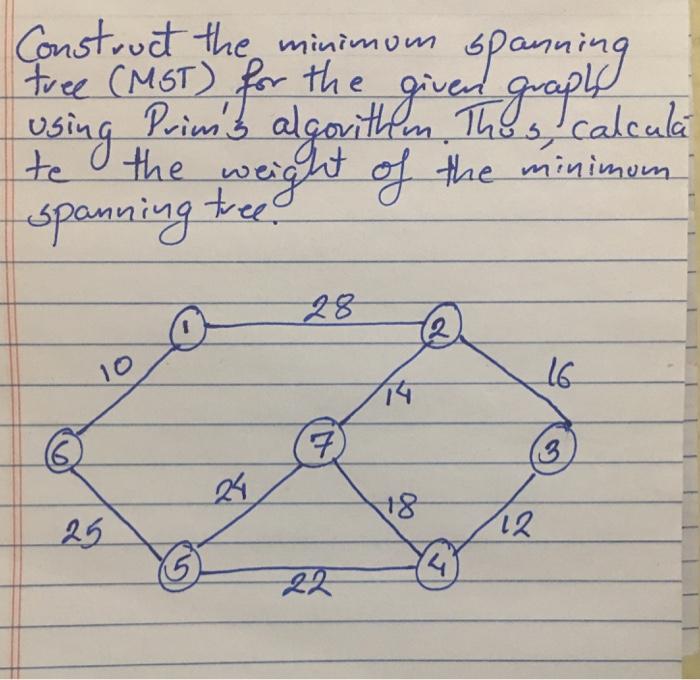 Construct the minimum spanning
tree (MST) for the given graph
using Prim's algorithm. Thus, calcula
te the weight of the minimum
spanning tree.
28
1
2
10
16
14
6
7
3
24
18
25
12
5
4
22